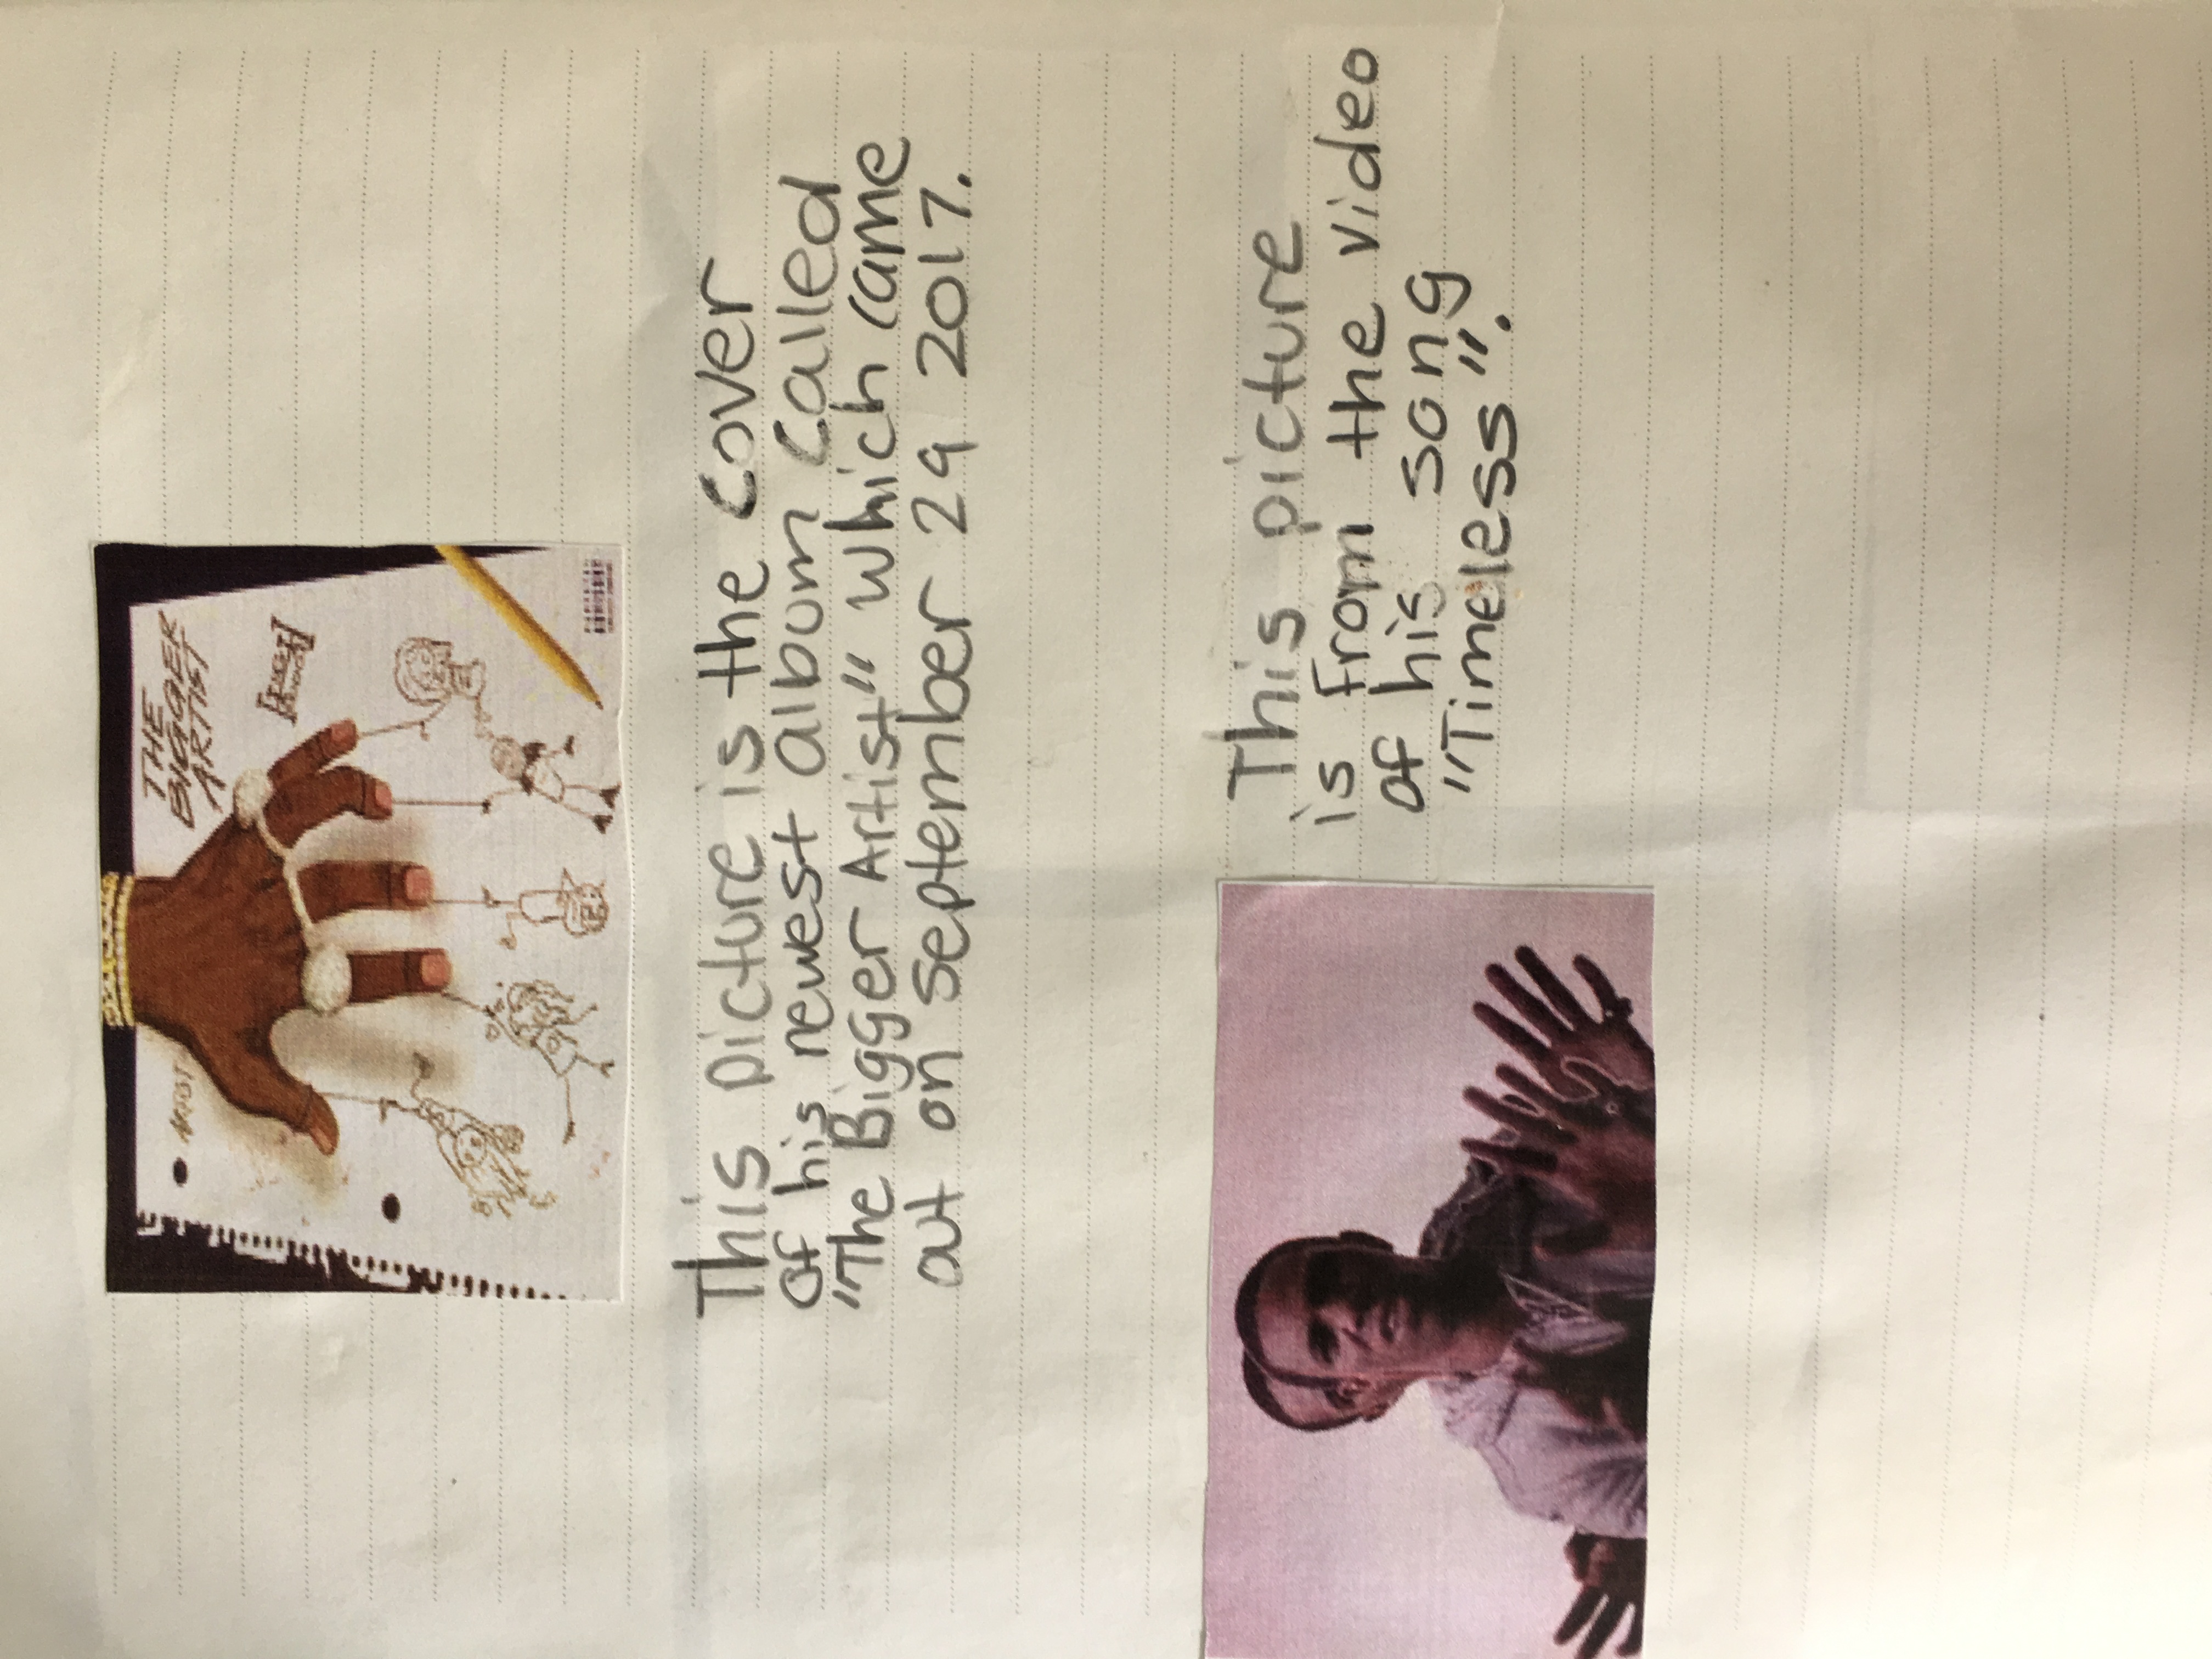 ARTIST
THE
BIGGER
ARTIST
This picture is the cover
of his newest album called
"The Bigger Artist" which came
out on September 29 2017.
This picture
is from the video
of his song
"Timeless".